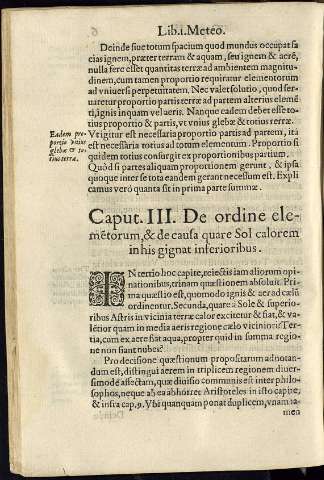 Lib.i.Meteo.
Deinde siue totum spacium quod mundus occupat fa
cias ignem, præter terram & aquam, seu ignem & aerē,
nulla fere esset quantitas terræ ad ambientem magnitu-
dinem, cum tamen proportio requiratur elementorum
ad vniuersi perpetuitatem. Nec valet solutio, quod ser-
uaretur proportio partis terræ ad partem alterius elemē
ti, ignis inquam vel aeris. Nanque eadem debet esse to-
tius proportio & partis, vt vnius glebæ & totius terræ.
Eadem pro-
portio vnius
glebæ & to-
tius terræ.
Vt igitur est necessaria proportio partis ad partem, ita
est necessaria totius ad totum elementum. Proportio si
quidem totius consurgit ex proportionibus partium.
Quòd si partes aliquam proportionem gerunt, & ipsa
quoque inter se tota eandem gerant necessum est. Expli
camus verò quanta sit in prima parte summæ.
Caput. III. De ordine ele-
mētorum, & de causa quare Sol calorem
in his gignat inferioribus.
IN tertio hoc capite, reiectis iam aliorum opi
nationibus, trinam quæstionem absoluit. Pri
ma quæstio est, quomodo ignis & aer ad cælū
ordinentur. Secunda, quare a Sole & superio-
ribus Astris in vicinia terræ calor excitetur & fiat, & va-
lētior quam in media aeris regione cælo vicinioris Ter-
tia, cum ex aere fiat aqua, propter quid in summa regio-
ne non fiant nubes?
Pro decisione quæstionum propositarum adnotan-
dum est, distingui aerem in triplicem regionem diuer-
simodè affectam, quæ diuisio communis est inter philo-
sophos, neque ab ea abhorret Aristoteles in isto capite,
& infra cap. 9. Vbi quanquam ponat duplicem, vnam ta-
men